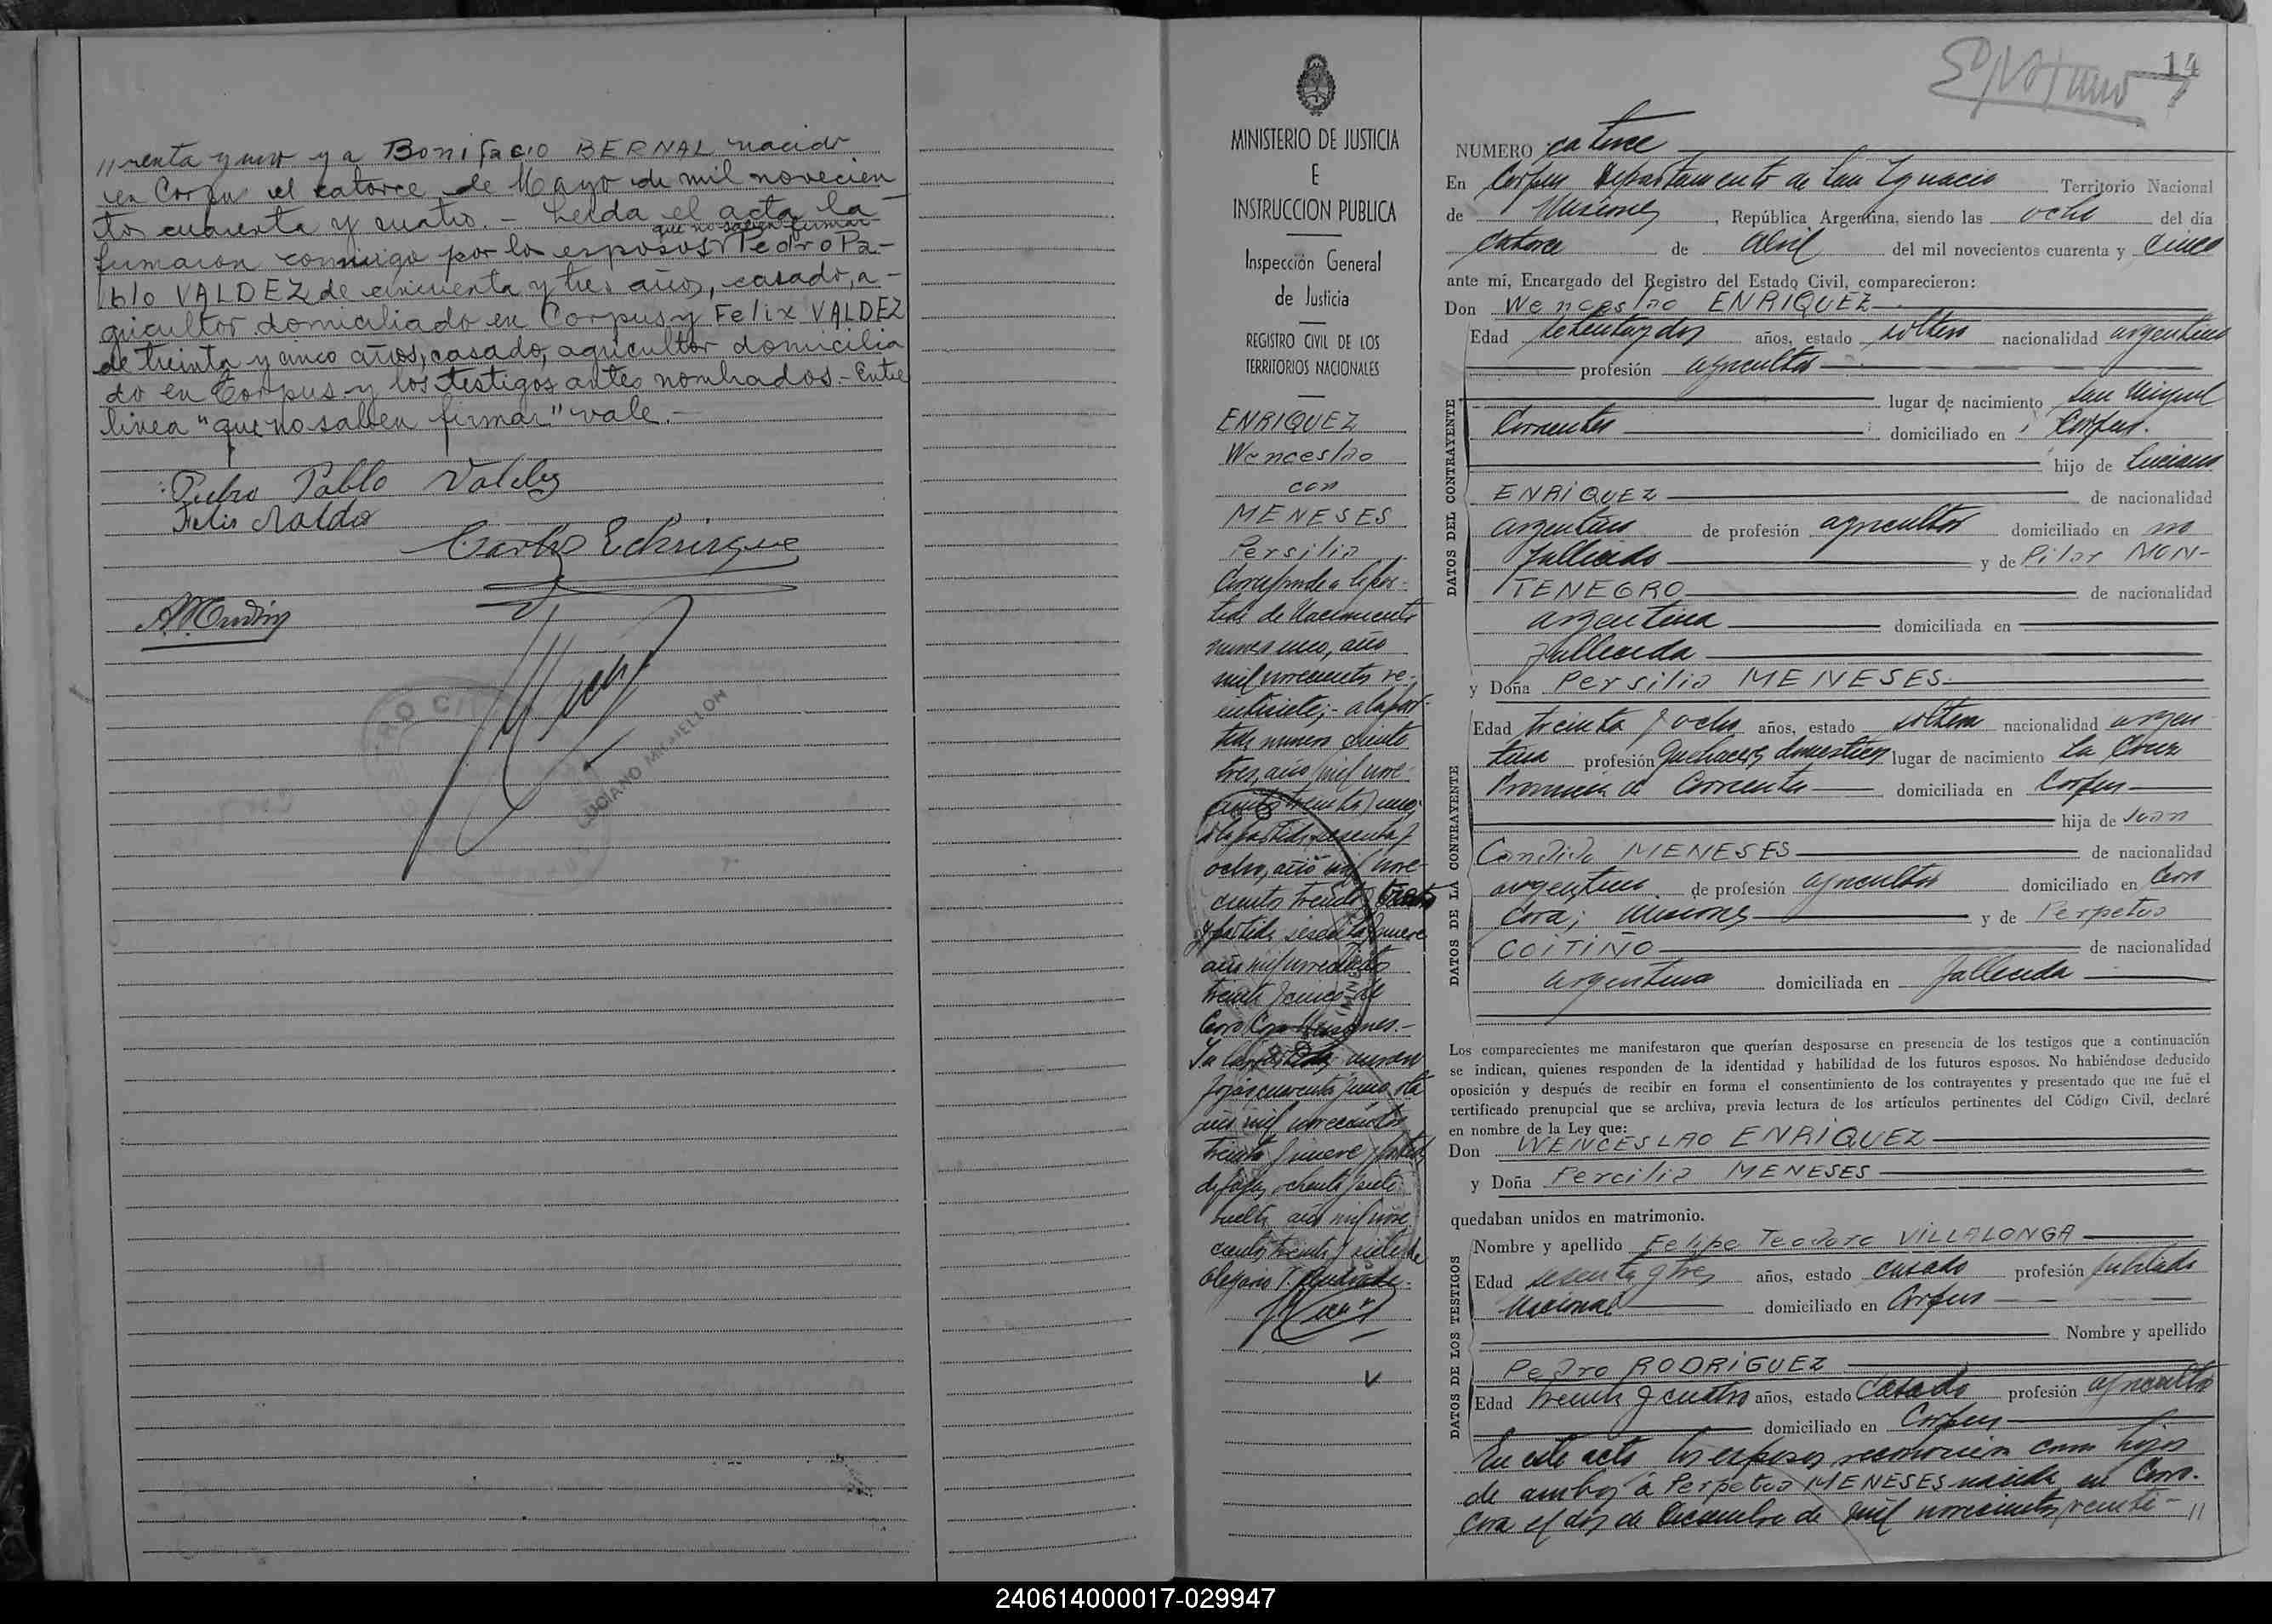 //renta y uno y a Bonifacio BERNAL nacido
en Corpus el catorce de Mayo de mil novecien
tos cuarenta y cuatro. - Leida el acta la
que no saben firmar
firmaron conmigo por los esposos Pedro Pa-
blo VALDEZ de cincuenta y tres años, casado, a-
gricultor domiciliado en Corpus y Felix VALDEZ
de treinta y cinco años, casado, agricultor domicilia
do en Corpus y los testigos antes nombrados. - Entre
linea "que no saben firmar" vale. -
Pedro Pablo Valdez
Carlos Echirigue
LUCIANO
MINISTERIO DE JUSTICIA
E
INSTRUCCION PUBLICA
Inspección General
de Justicia
REGISTRO CIVIL DE LOS
TERRITORIOS NACIONALES
ENRIQUEZ
Wenceslao
con
MENESES
Persilia
Corresponde a la par-
tida de Nacimiento
numero once, año
mil novecientos ve-
intisiete; - a la par-
tida numero ciento
tres, año mil nove
cientos treinta y uno;
a la partida sesenta y
ocho, año mil nove
cientos treinta
y partida sesenta y nueve
año mil novecientos
treinta y cinco de
Cerro Cora Misiones. -
fojas cuarenta y uno, del
año mil novecientos
treinta y nueve y partida
de fojas ochenta y siete
vuelta, año mil nove
cientos treinta y siete de
Olegario V. Andrade. -
14
NUMERO catorce
En Corpus Departamento de San Ignacio Territorio Nacional
de Misiones, República Argentina, siendo las ocho del día
catorce de Abril del mil novecientos cuarenta y cinco
ante mí, Encargado del Registro del Estado Civil, comparecieron:
Don Wenceslao ENRIQUEZ
Edad setenta y dos años, estado soltero nacionalidad argentino
profesión agricultor
lugar de nacimiento San Miguel
Corrientes domiciliado en Corpus.
hijo de Luciano
ENRIQUEZ de nacionalidad
argentino de profesión agricultor domiciliado en no
fallecido y de Pilar MON-
TENEGRO de nacionalidad
argentina domiciliada en
fallecida
y Doña Persilia MENESES.
Edad treinta y ocho años, estado soltera nacionalidad argen
tina profesión quehaceres domesticos lugar de nacimiento La Cruz
Provincia de Corrientes domiciliada en Corpus
hija de Juan
Candido MENESES de nacionalidad
argentino de profesión agricultor domiciliado en Cerro
Cora; Misiones y de Perpetua
COITIÑO de nacionalidad
argentina domiciliada en fallecida
DATOS DEL CONTRAYENTE
DATOS DE LA CONTRAYENTE
Los comparecientes me manifestaron que querían desposarse en presencia de los testigos que a continuación
se indican, quienes responden de la identidad y habilidad de los futuros esposos. No habiéndose deducido
oposición y después de recibir en forma el consentimiento de los contrayentes y presentado que me fué el
certificado prenupcial que se archiva, previa lectura de los artículos pertinentes del Código Civil, declaré
en nombre de la Ley que:
Don WENCESLAO ENRIQUEZ
y Doña Percilia MENESES
quedaban unidos en matrimonio.
DATOS DE LOS TESTIGOS
Nombre y apellido Felipe Teodoro VILLALONGA
Edad sesenta y tres años, estado casado profesión jubilado
Nacional domiciliado en Corpus
Nombre y apellido
Pedro RODRIGUEZ
Edad treinta y cuatro años, estado casado profesión agricultor
domiciliado en Corpus
En este acto los esposos reconocieron como hijos
de ambos a Perpetua MENESES nacida en Cerro-
Cora el dos de Diciembre de mil novecientos veinti- //
240614000017-029947